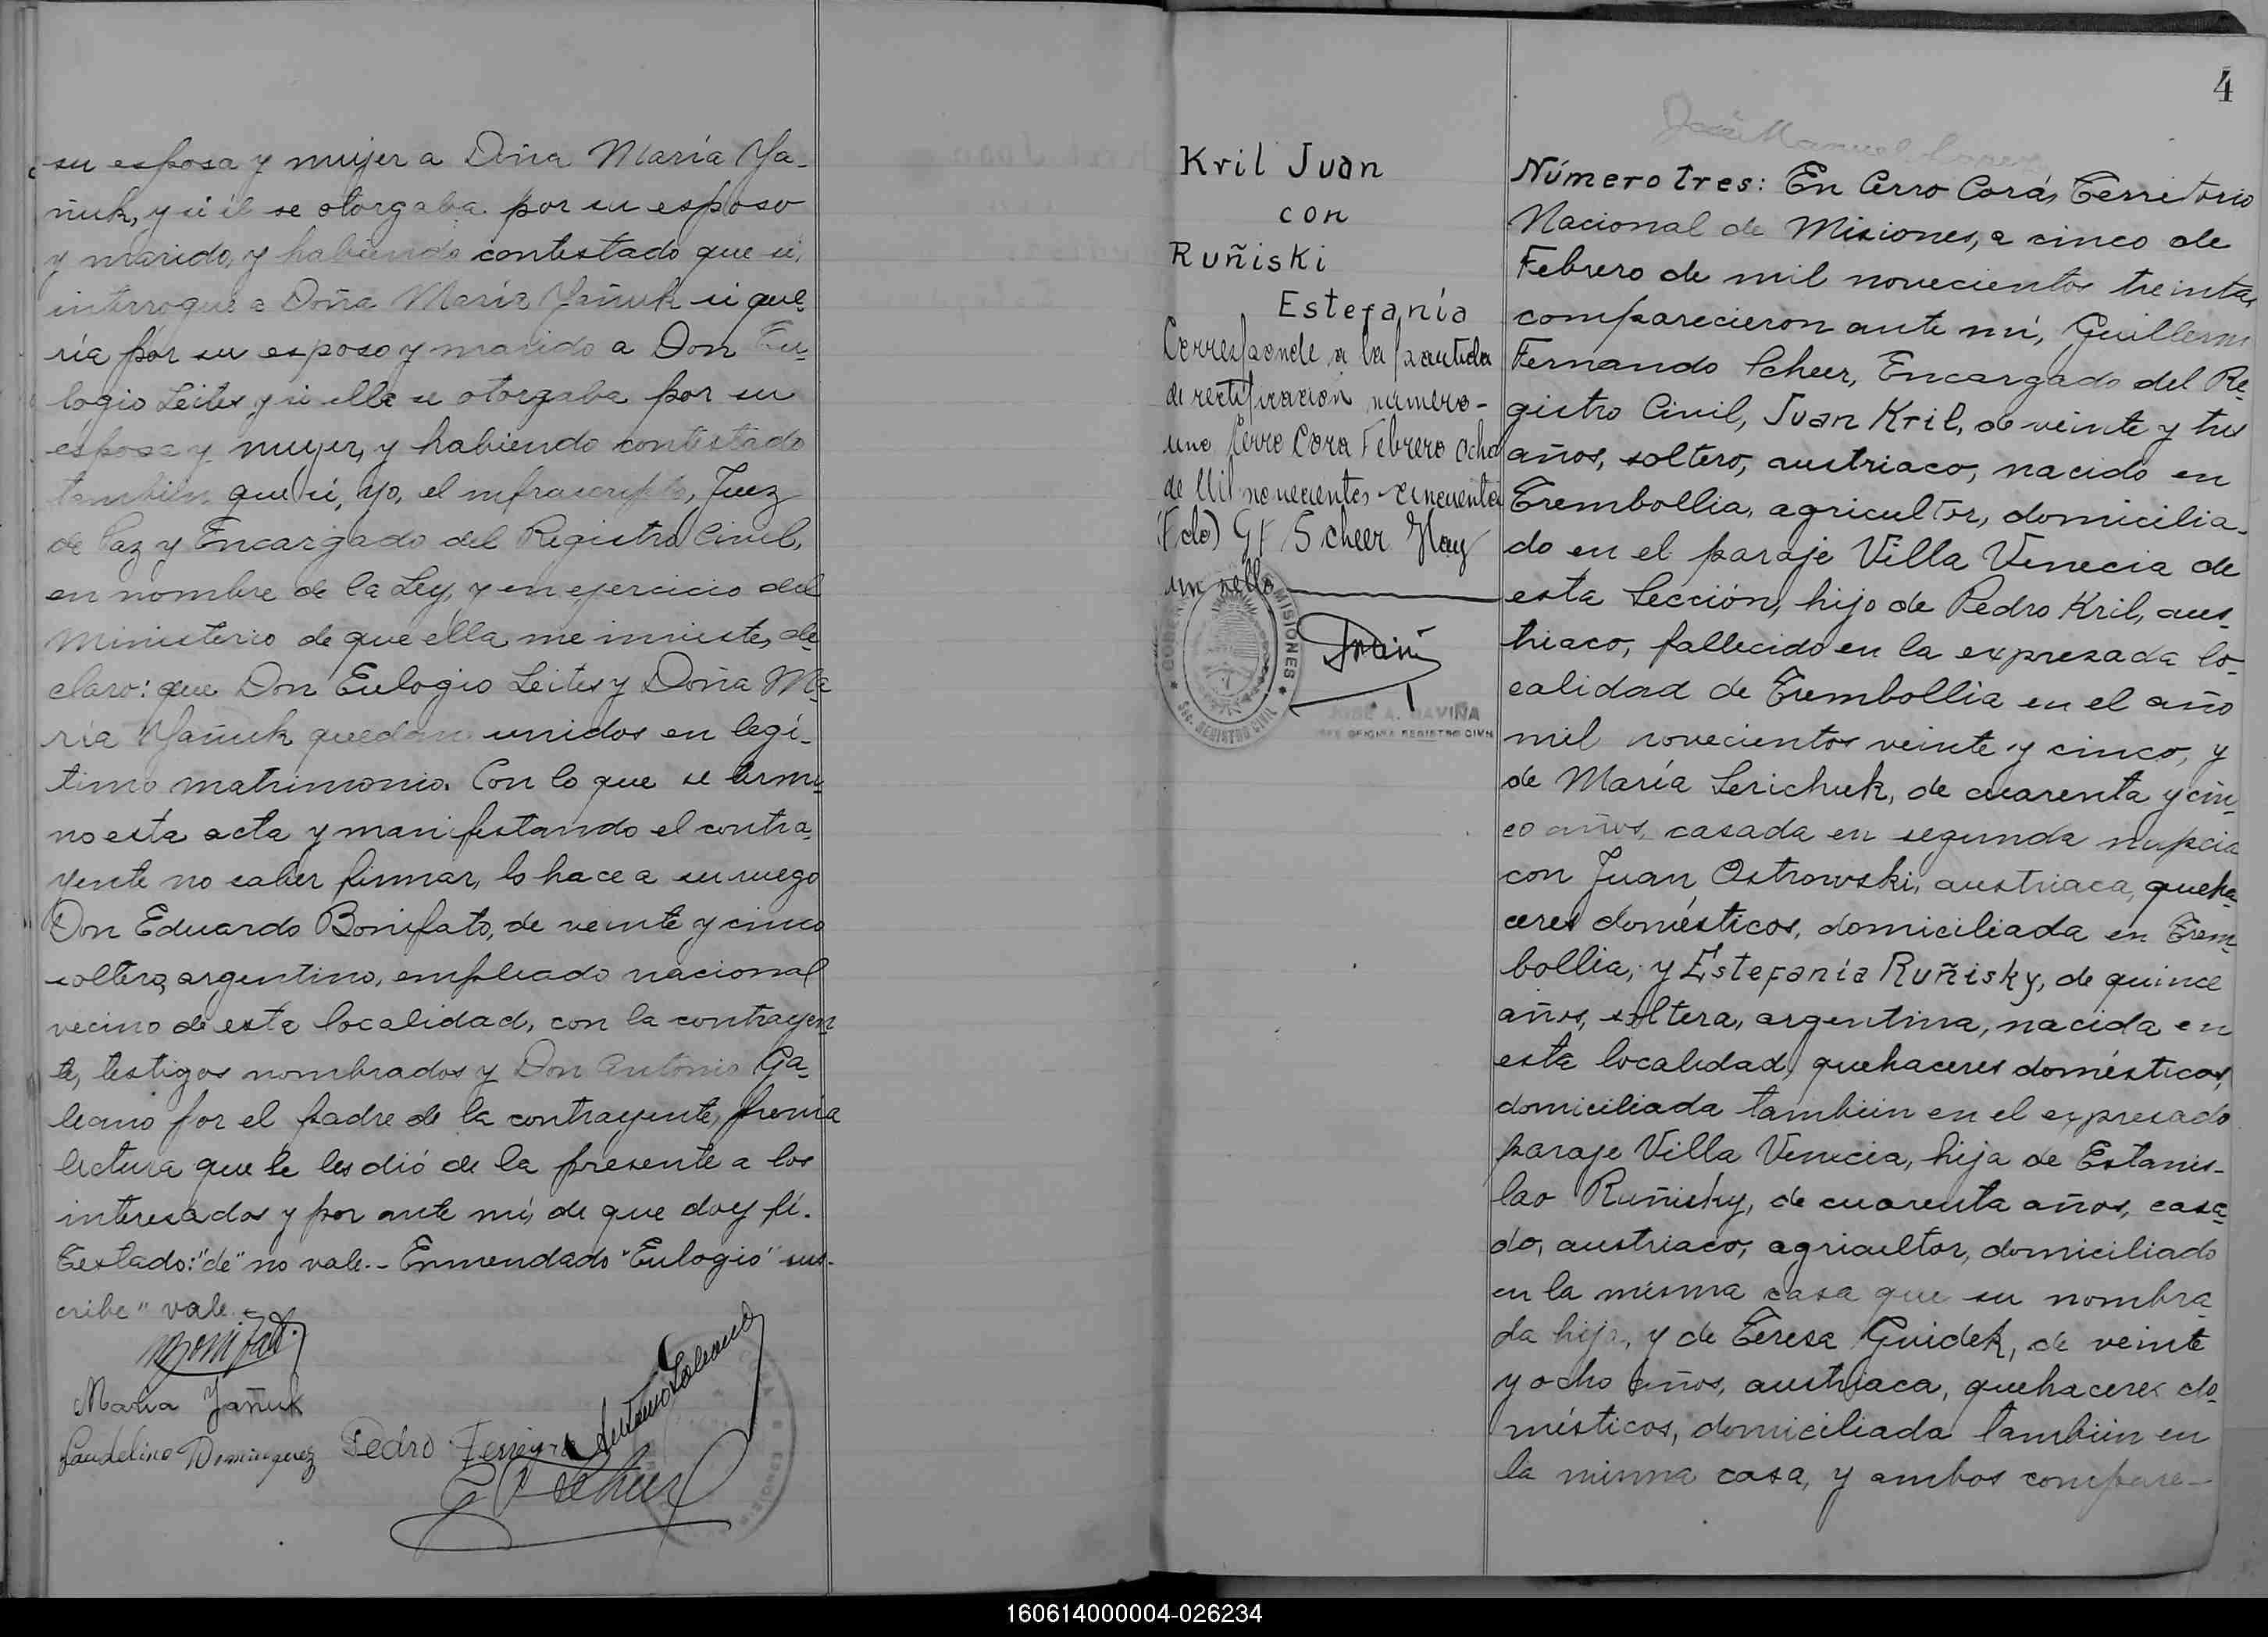 su esposa y mujer a Doña María Ya-
ñuk, y si él se otorgaba por su esposo
y marido, y habiendo contestado que sí,
interrogué a Doña María Yañuk si que-
ría por su esposo y marido a Don Eu-
logio Leites y si ella se otorgaba por su
esposa y mujer, y habiendo contestado
también que sí, Yo, el infrascripto, Juez
de Paz y Encargado del Registro Civil,
en nombre de la Ley, y en ejercicio del
Ministerio de que ella me inviste, de-
claro: que Don Eulogio Leites y Doña Ma-
ría Yañuk quedan unidos en legí-
timo matrimonio. Con lo que se termi-
nó esta acta y manifestando el contra-
yente no saber firmar, lo hace a su ruego
Don Eduardo Bonifato, de veinte y cinco
soltero, argentino, empleado nacional
vecino de esta localidad, con la contrayen-
te, testigos nombrados y Don Antonio Ga-
leano por el padre de la contrayente, previa
lectura que se les dió de la presente a los
interesados y por ante mí, de que doy fé.
Testado: "de" no vale.- Enmendado "Eulogio" sus-
cribe" vale.
Bonifato
María Yañuk
Gaudelino Dominguez
Pedro Ferreyra
Antonio Galeano
G F Scheer
4
José Manuel Lopez
Kril Juan
con
Ruñiski
Estefanía
Corresponde a la partida
de rectificacion número-
uno Cerro Cora Febrero ocho
de Mil novecientos cincuenta
(Fdo) G F Scheer Hay
un sello
MISIONES
SEC. REGISTRO CIVIL
JOSE A. DAVIÑA
JEFE OFICINA REGISTRO CIVIL
Número tres: En Cerro Corá, Territorio
Nacional de Misiones, a cinco de
Febrero de mil novecientos treinta,
comparecieron ante mí, Guillermo
Fernando Scheer, Encargado del Re-
gistro Civil, Juan Kril, de veinte y tres
años, soltero, austriaco, nacido en
Trembollia, agricultor, domicilia-
do en el paraje Villa Venecia de
esta Sección, hijo de Pedro Kril, aus-
triaco, fallecido en la expresada lo-
calidad de Trembollia en el año
mil novecientos veinte y cinco, y
de María Serichuk, de cuarenta y cin-
co años, casada en segunda nupcia
con Juan Ostrowski, austriaca, queha-
ceres domésticos, domiciliada en Trem-
bollia; y Estefanía Ruñisky, de quince
años, soltera, argentina, nacida en
esta localidad, quehaceres domésticos,
domiciliada también en el expresado
paraje Villa Venecia, hija de Estanis-
lao Ruñisky, de cuarenta años, casa-
do, austriaco, agricultor, domiciliado
en la misma casa que su nombra-
da hija, y de Teresa Guidek, de veinte
y ocho años, austriaca, quehaceres do-
mésticos, domiciliada también en
la misma casa, y ambos compare-
160614000004-026234